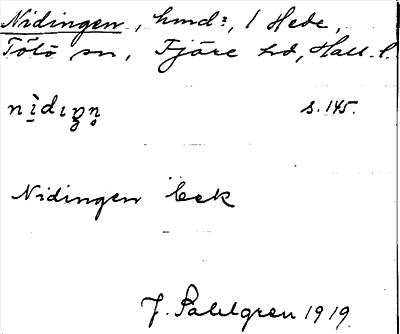 Nidingen, hmd:, 1 Hede,
Tölö sn, Fjäre hd, Hall. l.
s. 145.
Nidingen bek
J. Sahlgren 1919